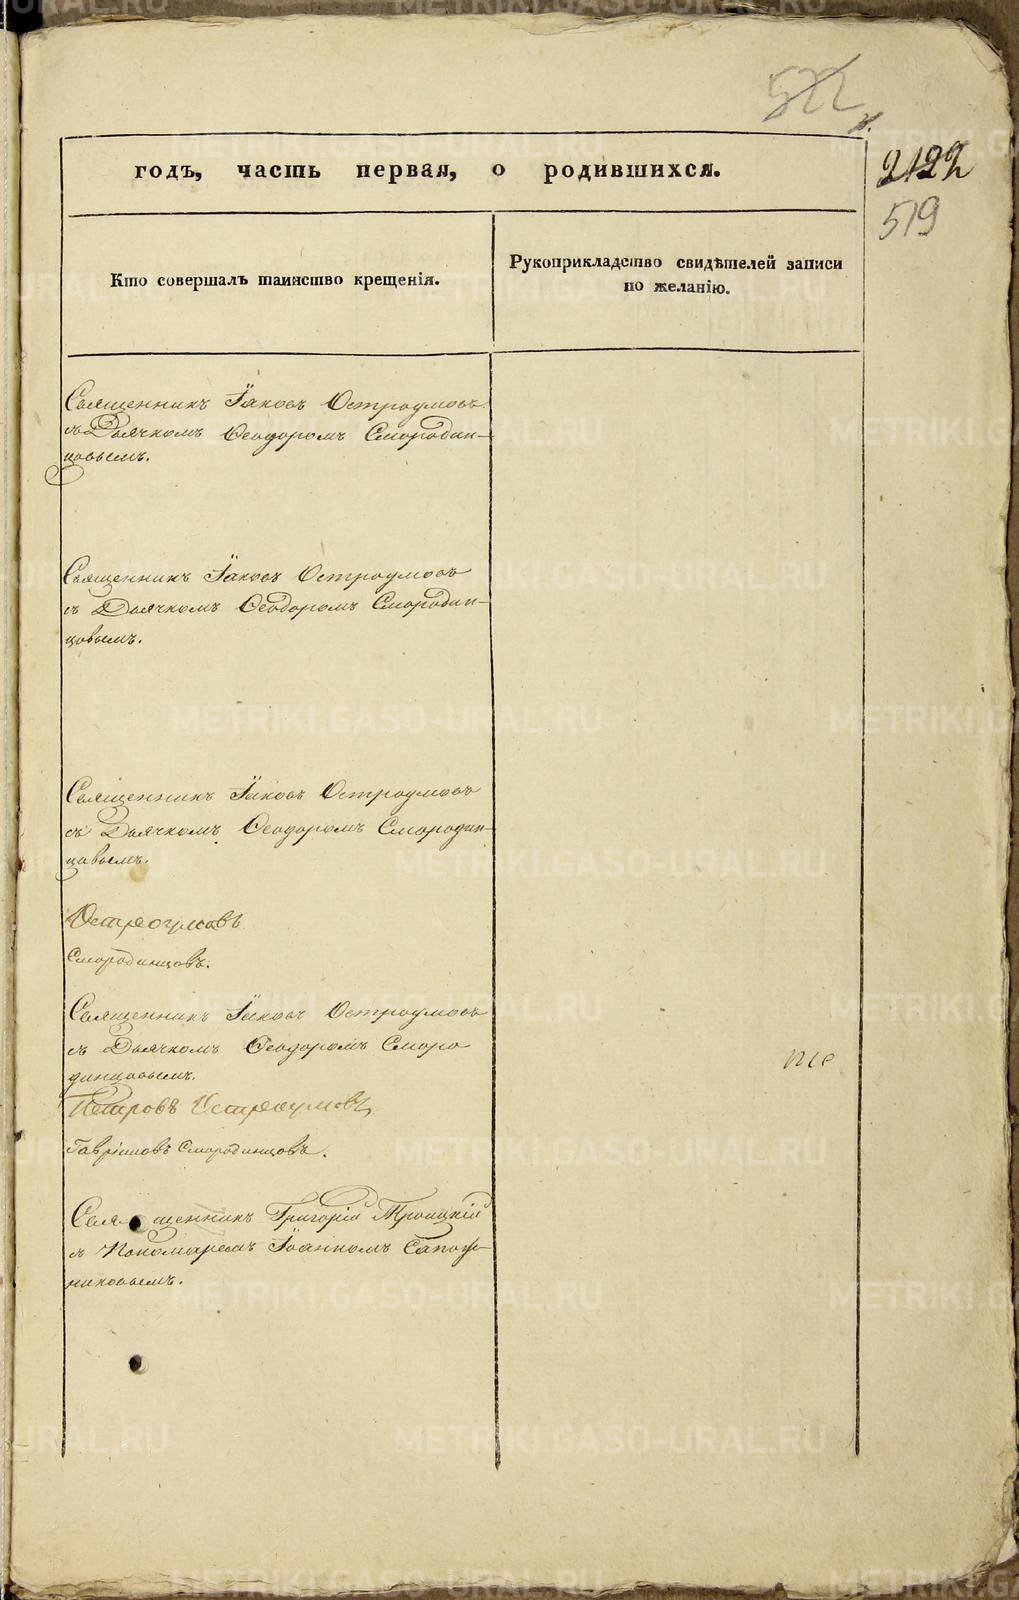 522
2122
519
годъ, часть первая, о родившихся.
Кто совершалъ таинство крещенія.
Рукоприкладство свидѣтелей записи
по желанію.
Священникъ Іаковъ Остроумовъ
съ Дьячкомъ Ѳеодоромъ Смородин-
цовымъ.
Священникъ Іаковъ Остроумовъ
съ Дьячкомъ Ѳеодоромъ Смородин-
цовымъ.
Священникъ Іаковъ Остроумовъ
съ Дьячкомъ Ѳеодоромъ Смородин-
цовымъ.
Остроумовъ
Смородинцовъ.
Священникъ Іаковъ Остроумовъ
съ Дьячкомъ Ѳеодоромъ Сморо
динцовымъ.
Петровъ Остроумовъ
Гавриловъ Смородинцовъ.
Священникъ Григорій Троицкій
съ Пономаремъ Іоанномъ Сапож-
никовымъ.
METRIKI.GASO-URAL.RU